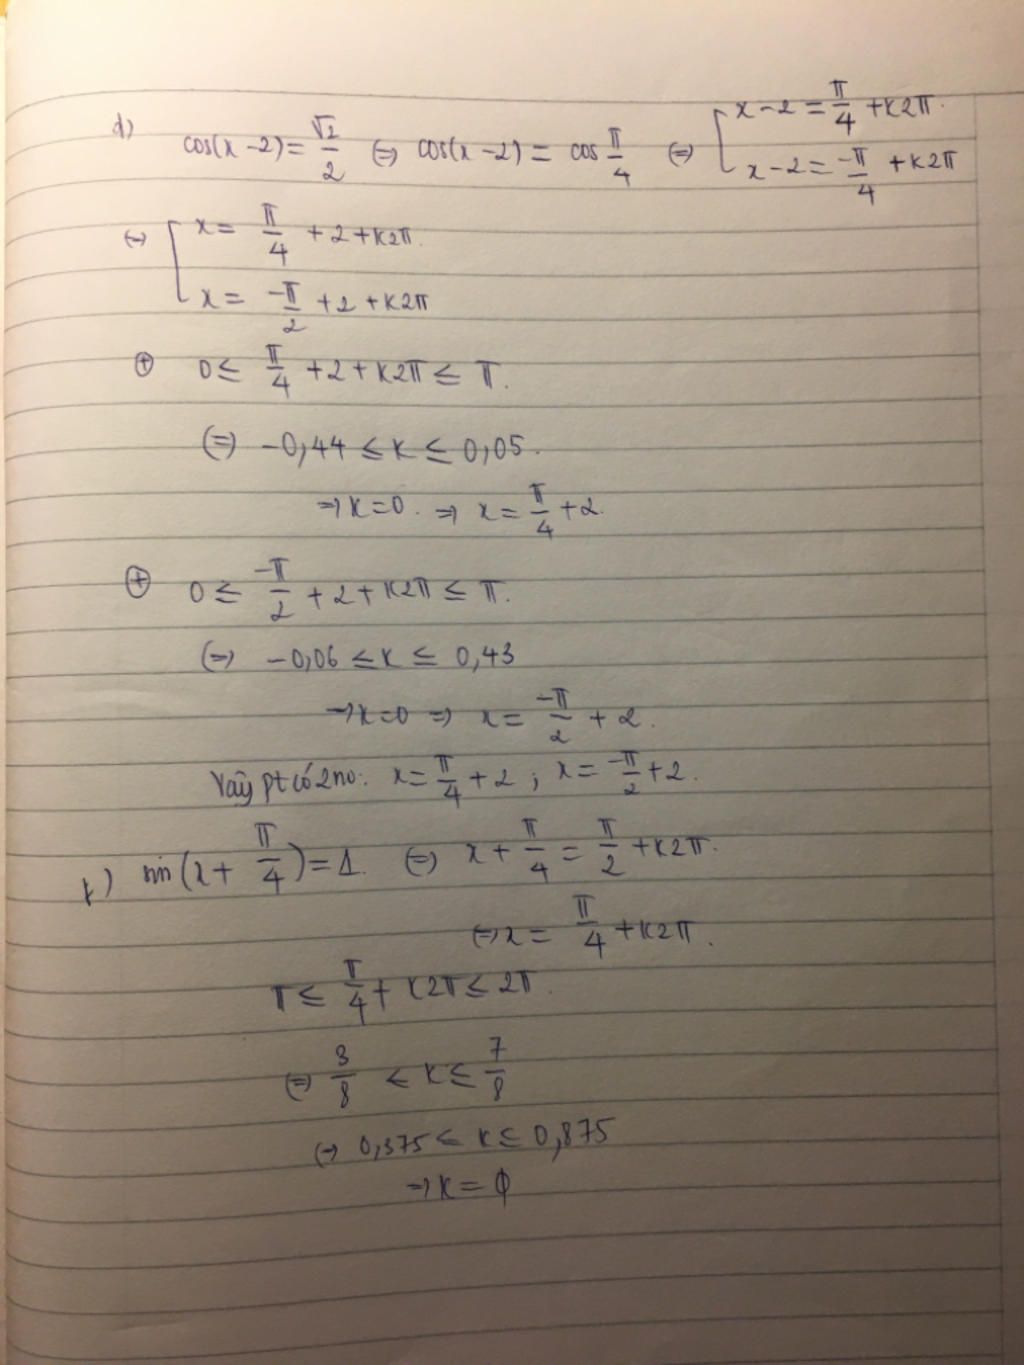 d) cos(x - 2) = √2/2 (=) cos(x - 2) = cos π/4 (=) [ x - 2 = π/4 + k2π.
x - 2 = -π/4 + k2π
(=) [ x = π/4 + 2 + k2π.
x = -π/2 + 2 + k2π
⊕ 0 ≤ π/4 + 2 + k2π ≤ π.
(=) -0,44 ≤ k ≤ 0,05.
=> k = 0. => x = π/4 + 2.
⊕ 0 ≤ -π/2 + 2 + k2π ≤ π.
(=) -0,06 ≤ k ≤ 0,43
=> k = 0 => x = -π/2 + 2.
Vậy pt có 2 no: x = π/4 + 2 ; x = -π/2 + 2.
sin(x + π/4) = 1. (=) x + π/4 = π/2 + k2π.
(=) x = π/4 + k2π.
π ≤ π/4 + k2π ≤ 2π.
(=) 3/8 < k ≤ 7/8
(=) 0,375 < k ≤ 0,875
=> k = ϕ